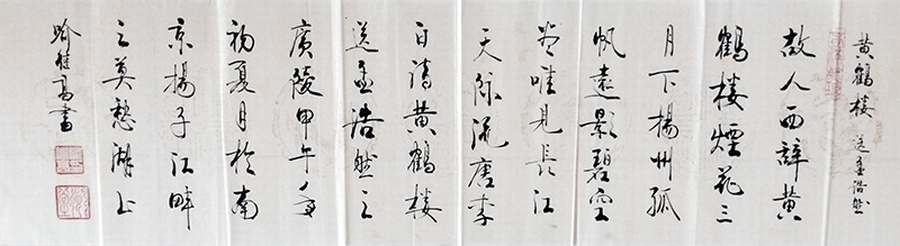 黄鶴樓 送孟浩然
故人西辞黄
鶴樓煙花三
月下揚州孤
帆遠影碧空
尽唯見長江
天際流唐李
白詩黄鶴樓
送孟浩然之
廣陵甲午年
初夏月於南
京揚子江畔
之莫愁湖上
書